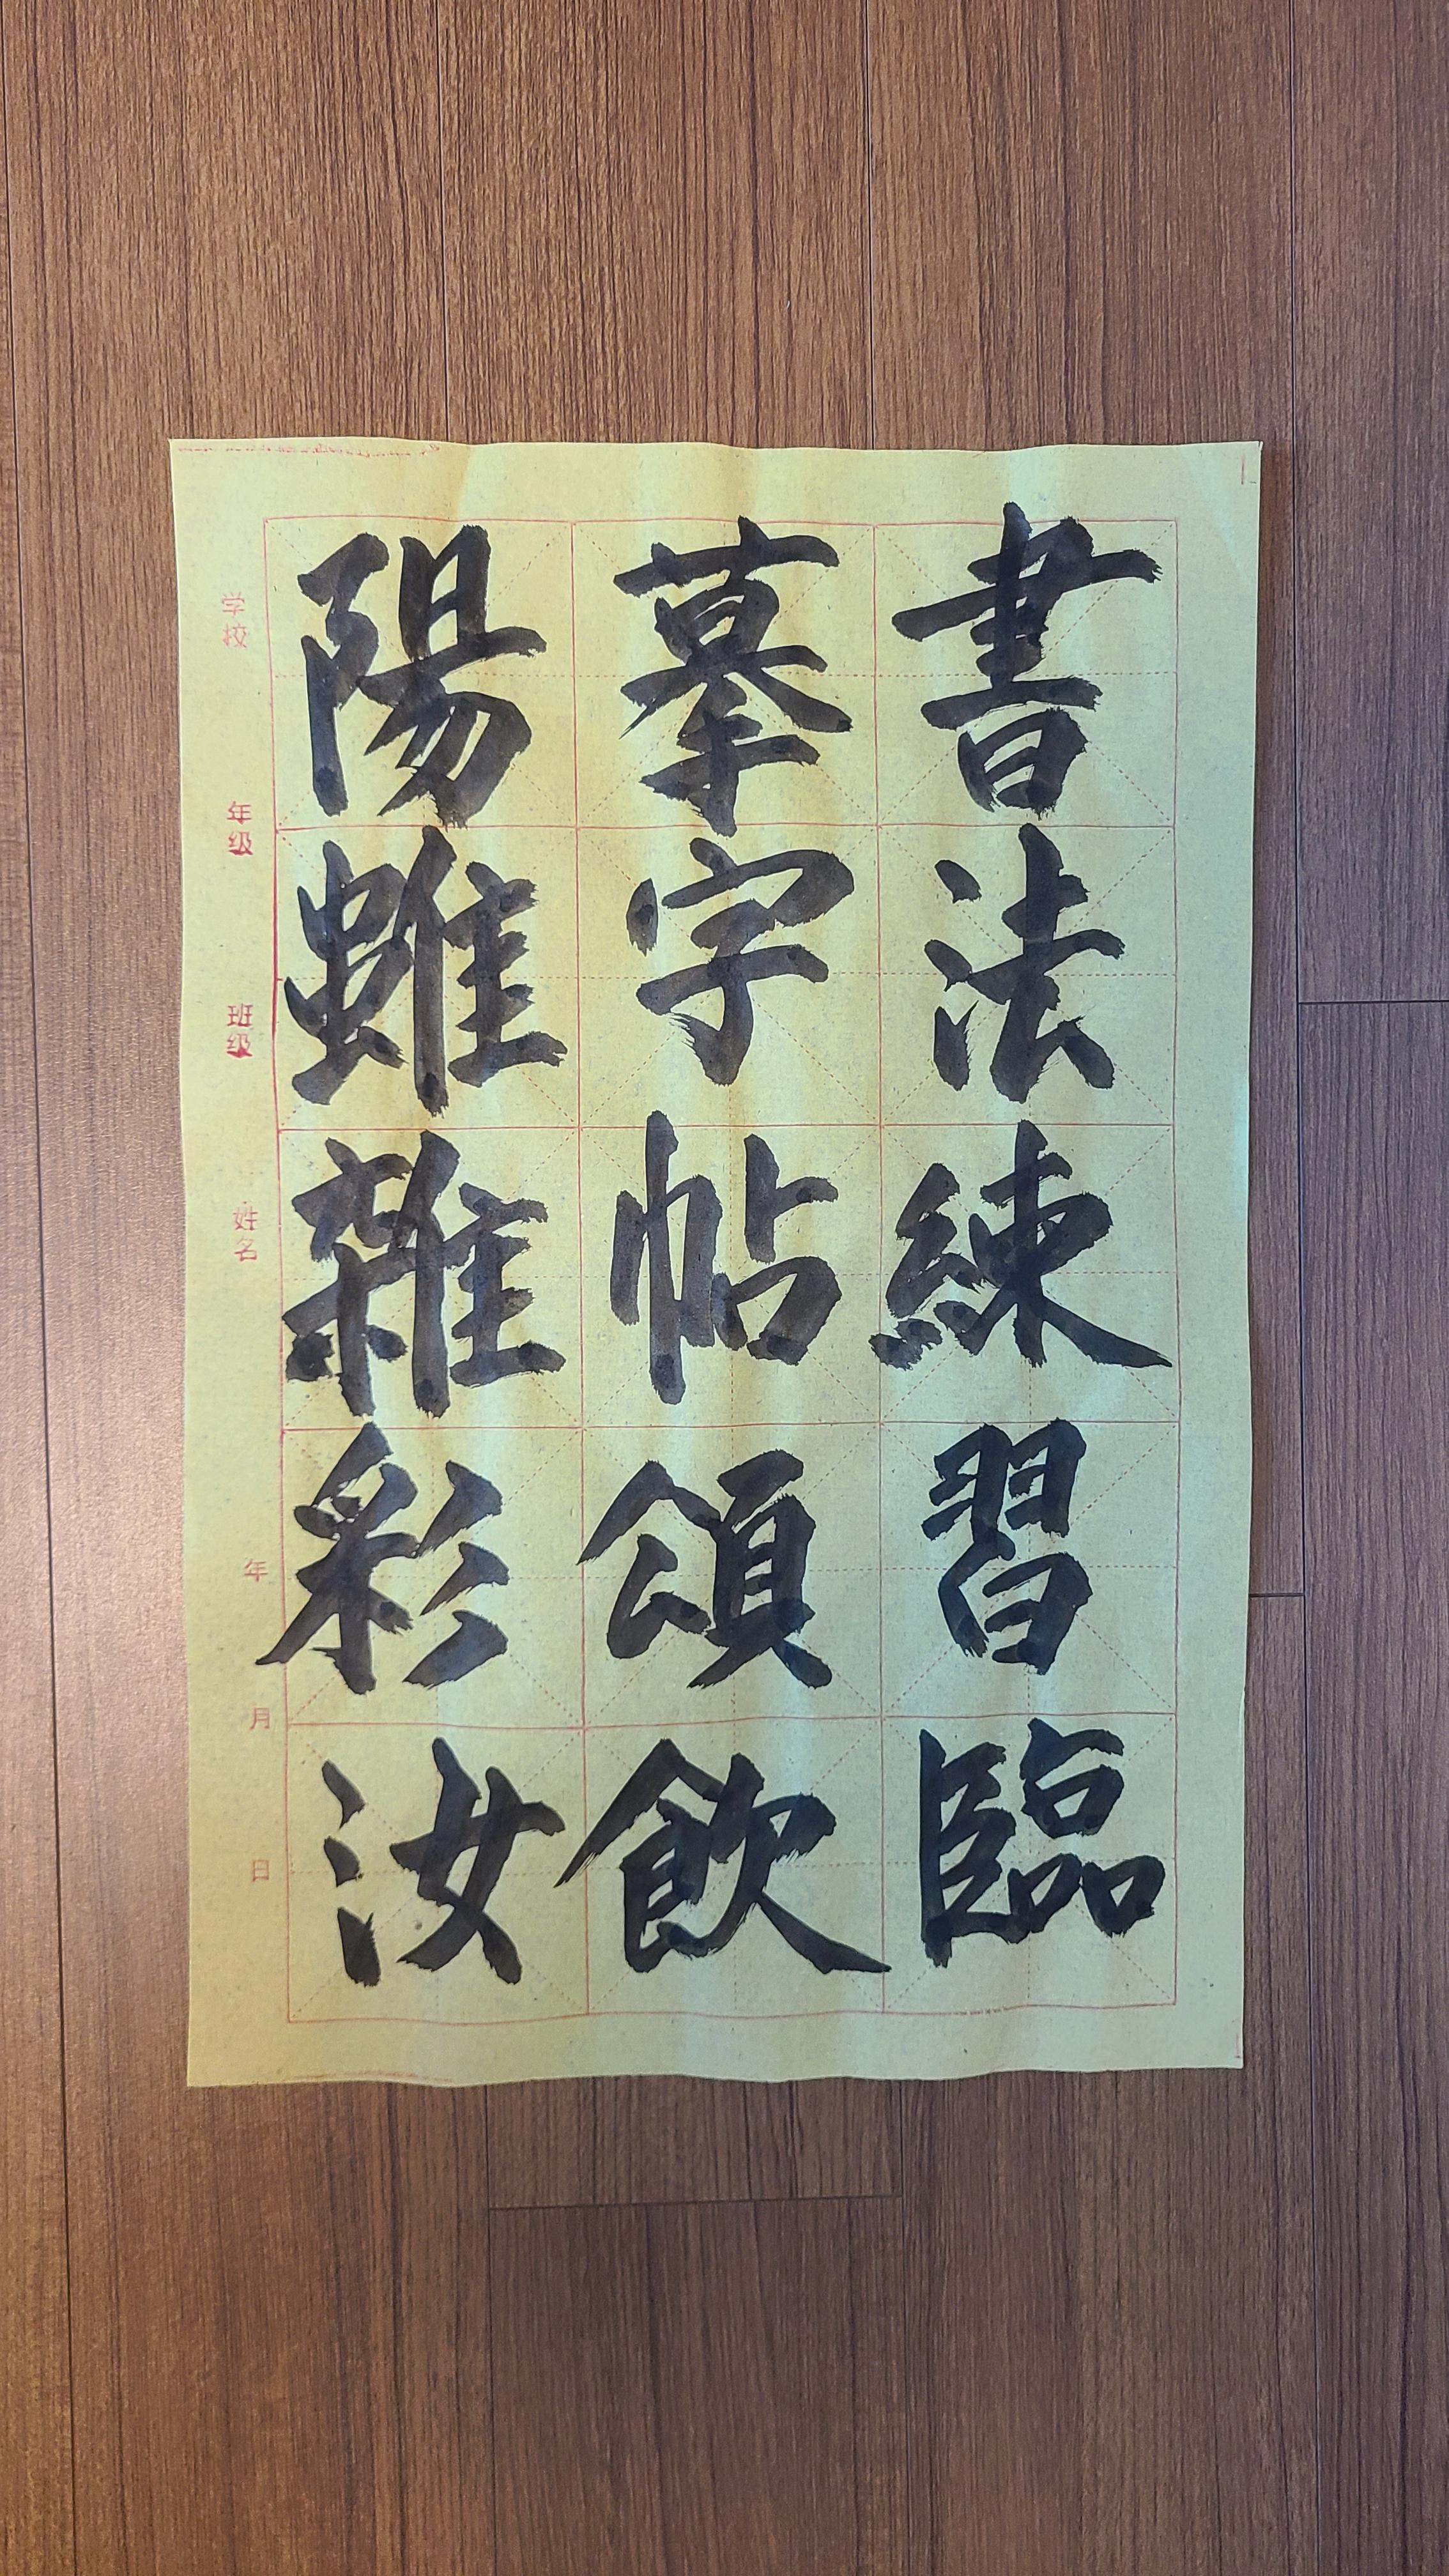 書法練習臨
摹字帖頌飲
陽雖雜彩汝
学校
年级
班级
姓名
年
月
日